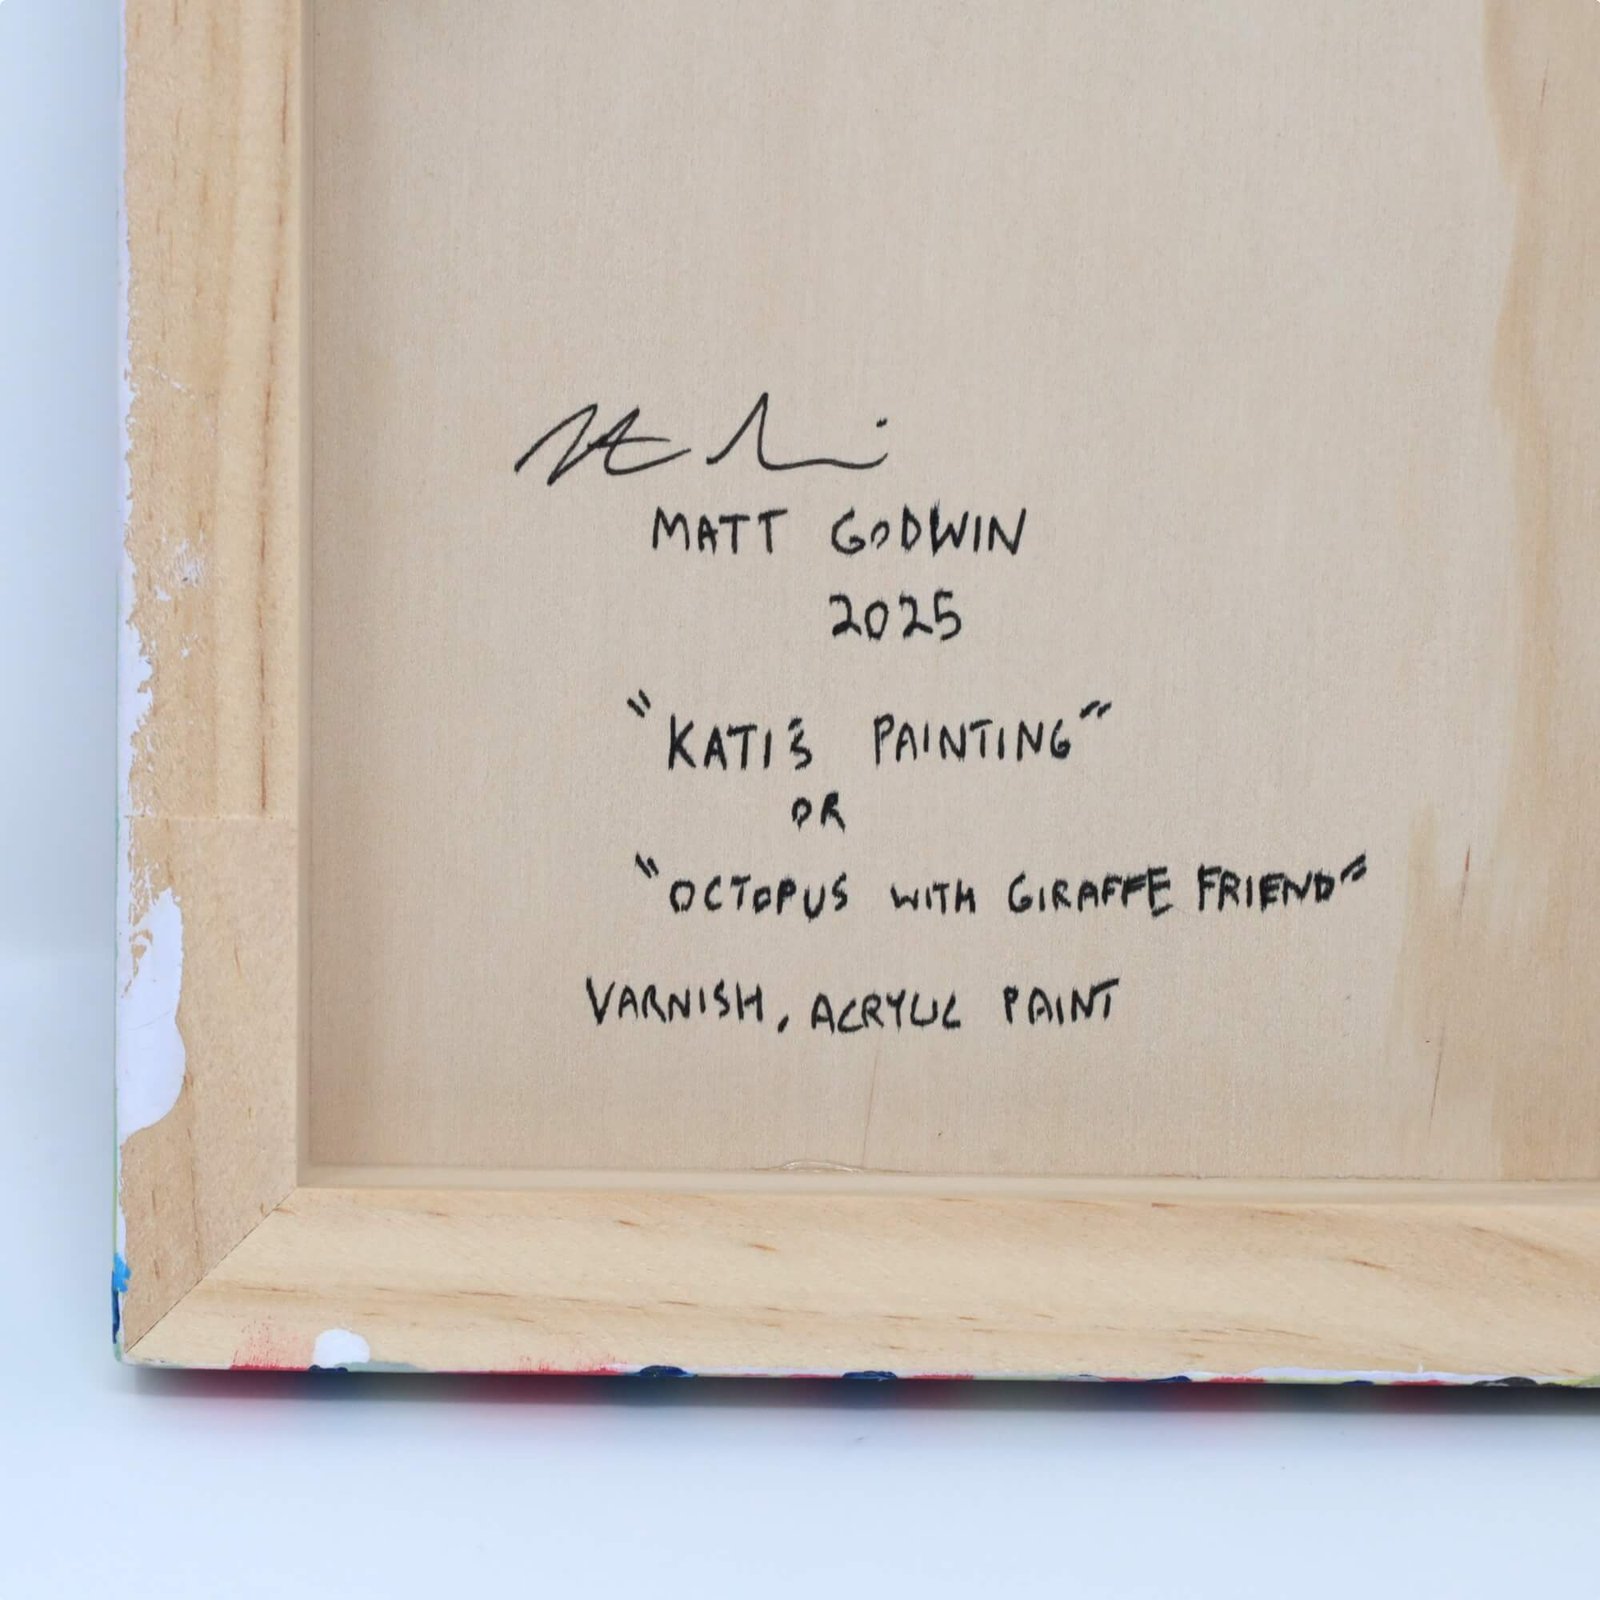 MATT GODWIN
2025
"KATIE'S PAINTING"
OR
"OCTOPUS WITH GIRAFFE FRIEND"
VARNISH, ACRYLIC PAINT